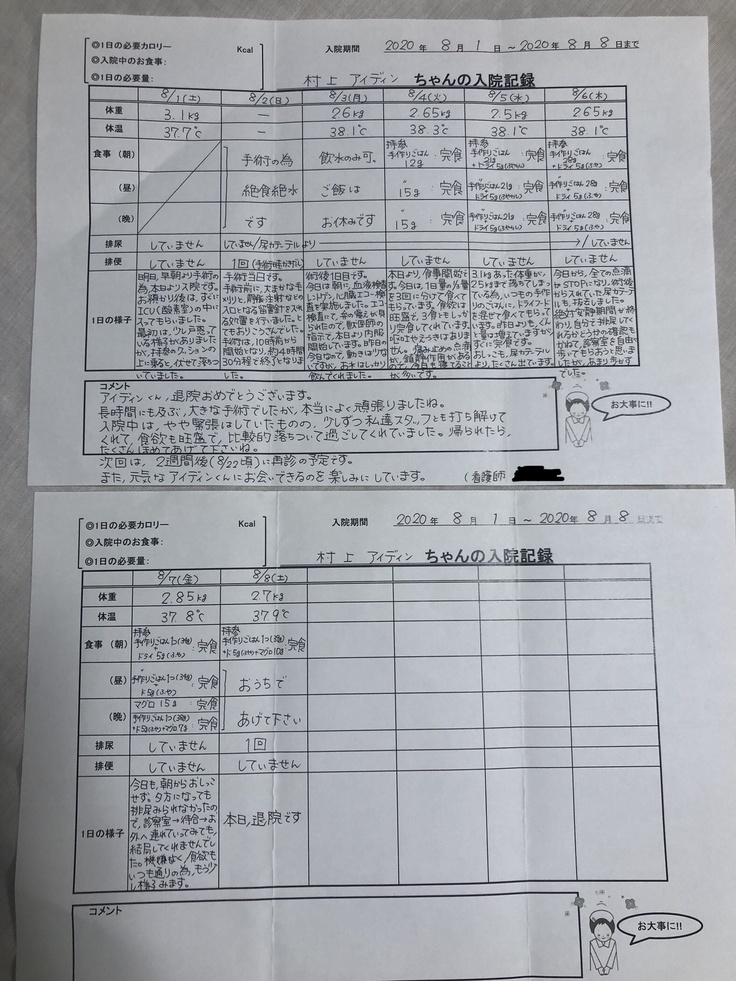 ◎1日の必要カロリー Kcal
◎入院中のお食事:
◎1日の必要量:
入院期間 2020年 8月 1日 ~2020年 8月 8日まで
村上 アイディン ちゃんの入院記録
8/1(土) 8/2(日) 8/3(月) 8/4(火) 8/5(水) 8/6(木)
体重 3.1kg — 2.6kg 2.65kg 2.5kg 2.65kg
体温 37.7℃ — 38.1℃ 38.3℃ 38.1℃ 38.1℃
食事 (朝) 手術の為 飲水のみ可。 持参 手作りごはん 12g :完食 持参 手作りごはん 21g +ドライ5g(ふやかし) :完食 持参 手作りごはん 28g +ドライ5g(ふや) :完食
(昼) 絶食絶水 ご飯は 〃 15g :完食 手作りごはん21g ドライ5g(ふやかし) :完食 手作りごはん 28g ドライ5g(ふや) :完食
(晩) です お休みです 〃 15g :完食 手作りごはん21g ドライ5g(ふやかし) :完食 手作りごはん 28g ドライ5g(ふや) :完食
排尿 していません していません/尿カテーテルより →/していません
排便 していません 1回 していません していません していません していません
1日の様子
明日、早朝より手術の
為、本日より入院です。
お預かり後は、すぐに
ICU(酸素室)の中に
入ってもらいました。
最初は、少し戸惑って
いる様子がありました
が、持参のクッションの
上に乗ると、伏せて落ちつ
いていました。
手術当日です。
手術前に、大まかな毛
刈りと、静脈注射などの
入口となる留置針を入れ
る処置を行いましたと
てもおりこうさんでした。
手術は、10時前から
開始となり、約4時間
30分程で終了となりま
した。
術後1日目です。
今日は朝に、血液検査、
レントゲン、心臓エコー検
査を実施しました。エコー
検査にて、弁の震えが見
られたので、獣医師の
指示で、本日より内服
開始しています。昨日の
今日なので、動きは少な
いですが、お水はしっかり
飲んでくれました。
本日より、食事開始で
す。今日は、1日量の1/3量
を3回に分けて食べて
もらっています。食欲は
旺盛で、3食ともしっか
り完食してくれています。
嘔吐やえづきはありま
せん。痛み止めの点滴
が、鎮静作用がある
ので、今日も寝てること
が多いです。
3.1kgあった体重が、
2.5kgまで落ちてしまっ
ている為、いつもの手作
りごはんに、ドライフード
を混ぜて食べてもらって
います。昨日よりも、ぐん
と量は増えていますが
すぐに完食です。
おしっこも、尿カテーテル
より、たくさん出ています。
今日から、全ての点滴
がSTOPになり、術後
から入れていた尿カテーテ
ルも、抜去しました。
絶対安静期間が終
わり、自分で排尿してく
れるかどうかの確認も
かねて、診察室を自由に
歩いてもらおうと思いま
したが、あまり歩かず
でした。
コメント
アイディンくん、退院おめでとうございます。
長時間にも及ぶ、大きな手術でしたが、本当によく頑張りましたね。
入院中は、やや緊張はしていたものの、少しずつ私達スタッフとも打ち解けて
くれて、食欲も旺盛で、比較的落ちついて過ごしてくれていました。帰られたら、
たくさんほめてあげて下さいね。
次回は、2週間後(8/22頃)に再診の予定です。
また、元気なアイディンくんにお会いできるのを楽しみにしています。 (看護師
お大事に!!
◎1日の必要カロリー Kcal
◎入院中のお食事:
◎1日の必要量:
入院期間 2020年 8月 1日 ~ 2020年 8月 8日まで
村上 アイディン ちゃんの入院記録
8/7(金) 8/8(土)
体重 2.85kg 2.7kg
体温 37.8℃ 37.9℃
食事 (朝) 持参 手作りごはん1つ(3個) + ドライ5g(ふや) :完食 持参 手作りごはん1つ(3個) +ドライ5g(ふや)+マグロ10g :完食
(昼) 手作りごはん1つ(3個) ドライ5g(ふや) :完食 おうちで
(晩) マグロ 15g :完食 手作りごはん1つ(3個) +ドライ5g(ふや)+マグロ7g :完食 あげて下さい
排尿 していません 1回
排便 していません していません
1日の様子
今日も、朝からおしっこ
せず。夕方になっても
排尿みられなかったの
で、診察室→待合→お
外へ連れていってみても、
結局してくれませんでし
た。機嫌よく、食欲も
いつも通りの為、もう少
し様子みます。
本日、退院です
コメント
お大事に!!